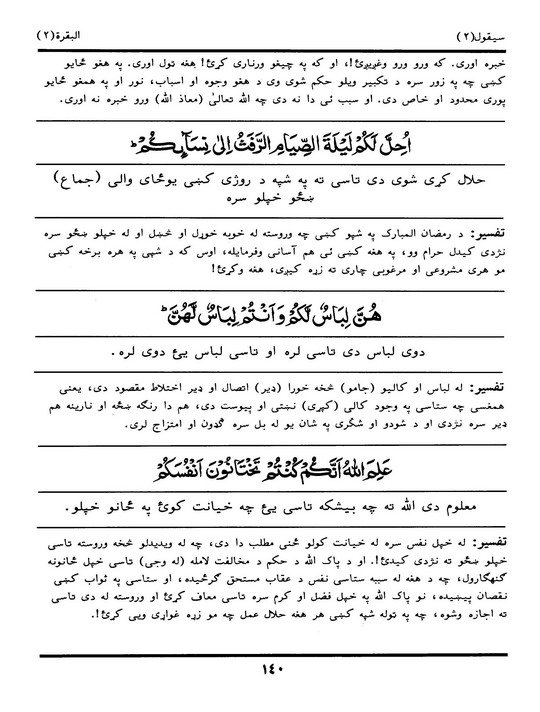 سيقول(٢)
البقرة(٢)
خبره اوری. که ورو ورو وغږېږئ!، او که په چيغو ورناری کړئ! هغه ټول اوری. په هغو ځايو
کښی چه په زور سره د تکبير ويلو حکم شوی وی د هغو وجوه او اسباب، نور او په همغو ځايو
پوری محدود او خاص دی. او سبب ئی دا نه دی چه الله تعالیٰ (معاذ الله) ورو خبره نه اوری.
اُحِلَّ لَكُمْ لَيْلَةَ الصِّيَامِ الرَّفَثُ إِلىٰ نِسَآئِكُمْ ۖ
حلال کړی شوی دی تاسی ته په شپه د روژی کښی يوځای والی (جماع)
ښځو خپلو سره
تفسير: د رمضان المبارک په شپو کښی چه وروسته له خوبه خوړل او څښل او له خپلو ښځو سره
نژدی کيدل حرام وو، په هغه کښی ئی هم آسانی وفرمايله، اوس که د شپی په هره برخه کښی
مو هری مشروعی او مرغوبی چاری ته زړه کيږی، هغه وکړئ!.
هُنَّ لِبَاسٌ لَكُمْ وَاَنْتُمْ لِبَاسٌ لَّهُنَّ ۖ
دوی لباس دی تاسی لره او تاسی لباس يئ دوی لره.
تفسير: له لباس او کاليو (جامو) څخه خورا (ډير) اتصال او ډير اختلاط مقصود دی، يعنی
همغسی چه ستاسی په وجود کالی (کپړی) نښتی او پيوست دی، هم دا رنګه ښځه او نارينه هم
ډير سره نژدی او د شودو او شکری په شان يو له بل سره ګډون او امتزاج لری.
عَلِمَ اللّٰهُ اَنَّكُمْ كُنْتُمْ تَخْتَانُوْنَ اَنْفُسَكُمْ
معلوم دی الله ته چه بيشکه تاسی يئ چه خيانت کوئ په ځانو خپلو.
تفسير: له خپل نفس سره له خيانت کولو ځنی مطلب دا دی، چه له ويديدلو څخه وروسته تاسی
خپلو ښځو ته نژدی کيدئ!. او د پاک الله د حکم د مخالفت لامله (له وجی) تاسی خپل ځانونه
ګنهګارول، چه د هغه له سببه ستاسی نفس د عقاب مستحق ګرځيده، او ستاسی په ثواب کښی
نقصان پيښيده، نو پاک الله په خپل فضل او کرم سره تاسی معاف کړئ او وروسته له دی تاسی
ته اجازه وشوه، چه په ټوله شپه کښی هر هغه حلال عمل چه مو زړه غواړی ويی کړئ!.
١٤٠